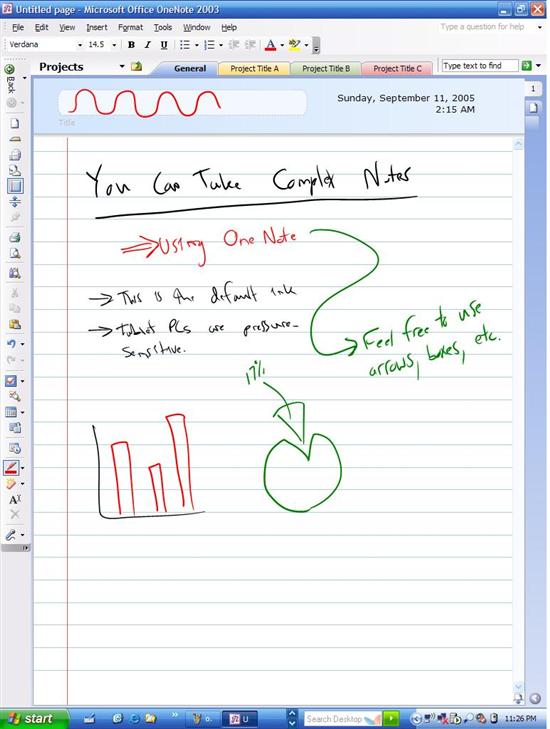 Untitled page - Microsoft Office OneNote 2003
File Edit View Insert Format Tools Table Window Help
Type a question for help
Verdana 14.5 B I U A ab
Projects General Project Title A Project Title B Project Title C Type text to find
Back
1
Sunday, September 11, 2005
2:15 AM
Title
You Can Take Complex Notes
⇒ Using OneNote
→ This is the default ink
→ Tablet PCs are pressure-
sensitive.
Feel free to use
arrows, boxes, etc.
17%
start
o.
U
Search Desktop
11:26 PM